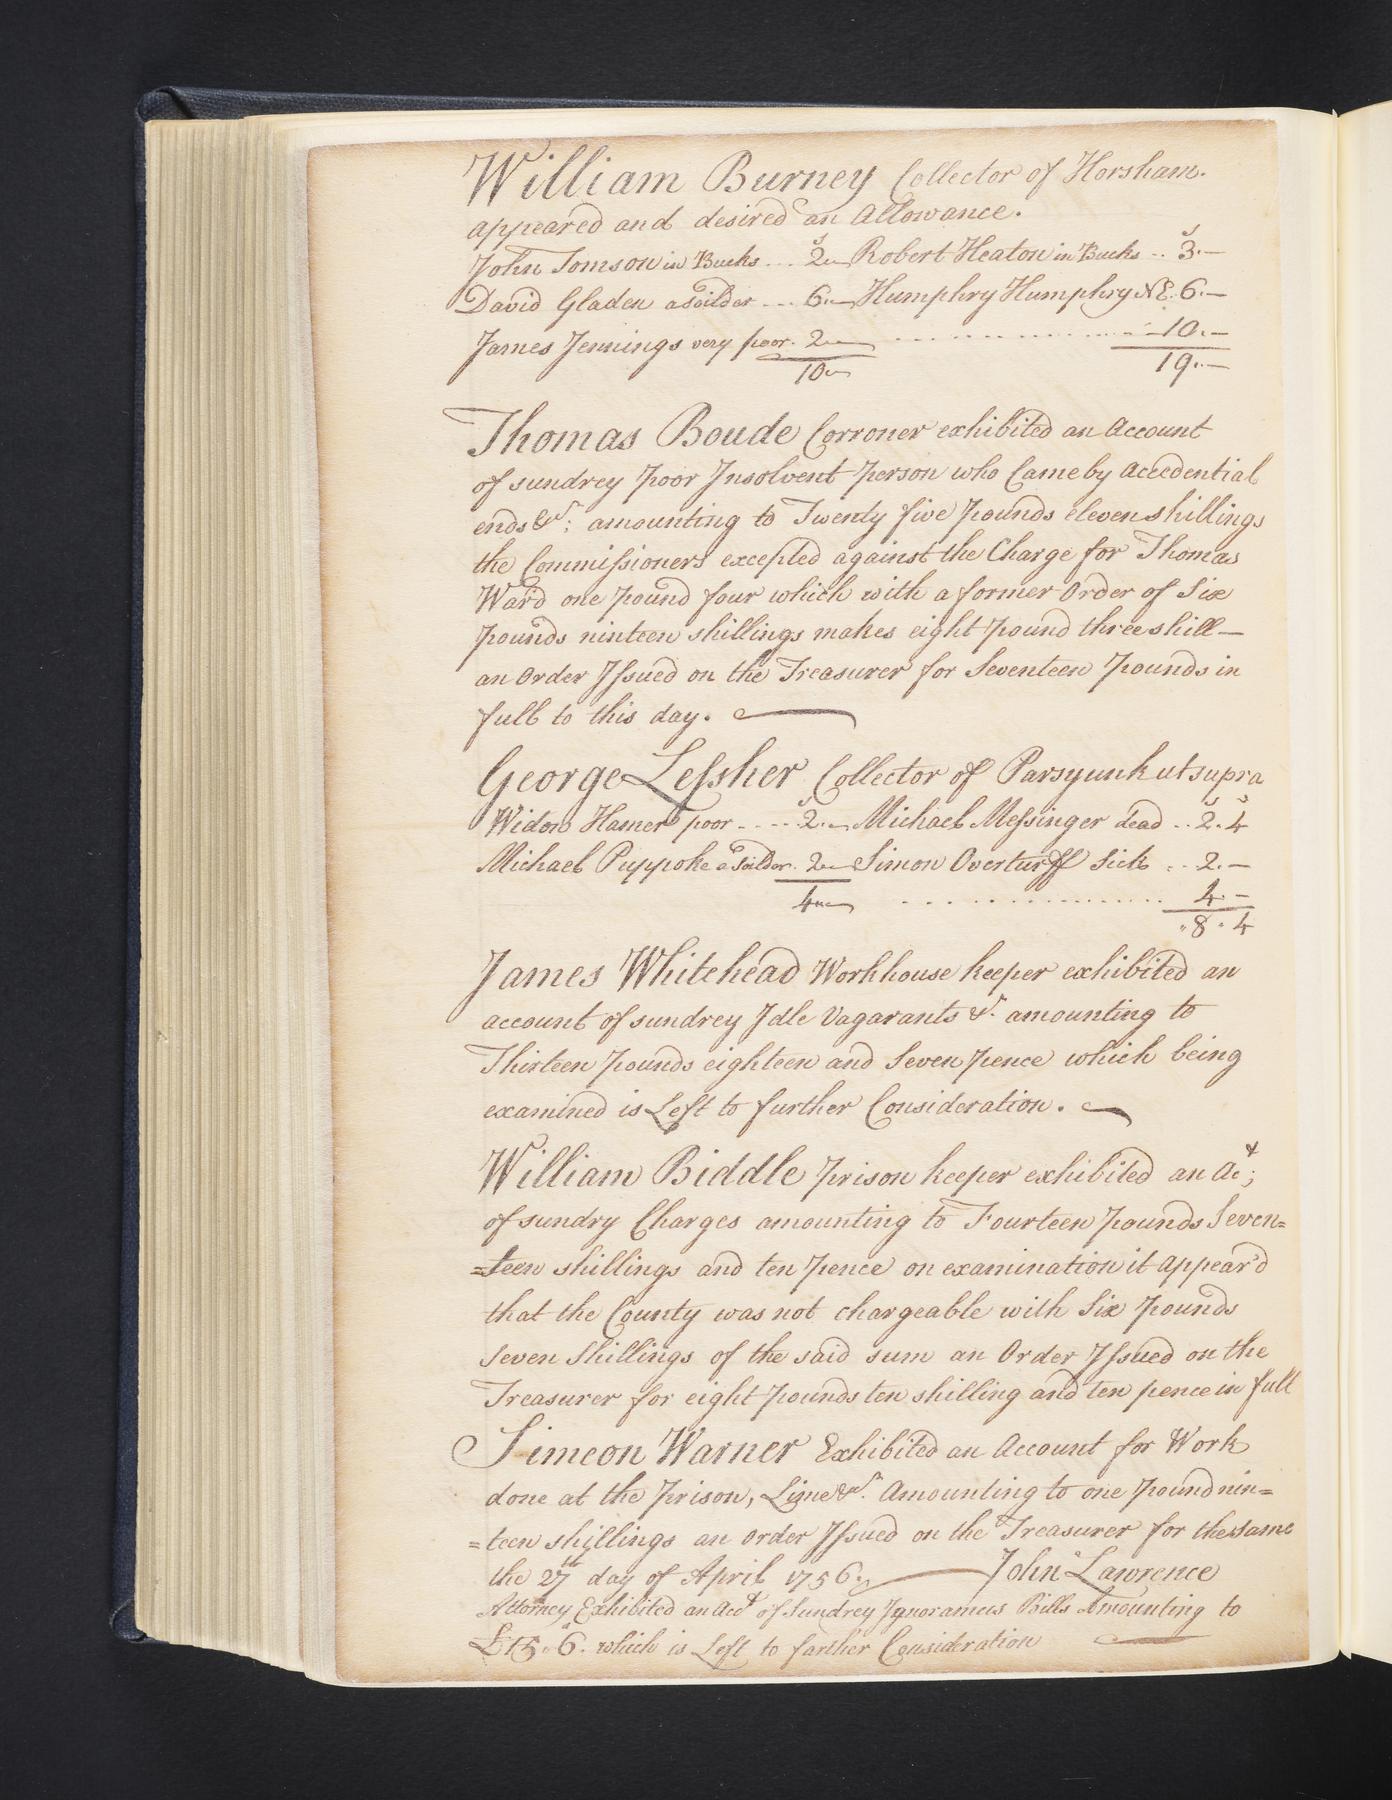 William Burney Collector of Horsham.
appeared and desired an Allowance.
John Tomson in Bucks ... 2.— Robert Heaton in Bucks .. 3.—
David Gladen a Soilder ... 6.— Humphry Humphry N E. 6.—
James Jennings very poor . 2— .............. 10.—
10— 19.—
Thomas Boude Corroner exhibited an Account
of sundrey poor Insolvent person who Came by Accedential
ends &c; amounting to Twenty five pounds eleven shillings
the Commissioners excepted against the Charge for Thomas
Ward one pound four which with a former Order of Six
pounds ninteen shillings makes eight pound three shill—
an Order Issued on the Treasurer for Seventeen pounds in
full to this day.
George Lessher Collector of Parsyunk ut supra
Widow Hamer poor .... 2.— Michael Messinger dead .. 2.4
Michael Puppoke a Soilder . 2— Simon Overturff Sick .. 2.—
4— .............. 4.—
8.4
James Whitehead Workhouse keeper exhibited an
account of sundrey Idle Vagarants &c. amounting to
Thirteen pounds eighteen and Seven pence which being
examined is Left to further Consideration.
William Biddle prison keeper exhibited an Act;
of sundry Charges amounting to Fourteen pounds Seven=
=teen shillings and ten pence on examination it appear'd
that the County was not chargeable with Six pounds
Seven Shillings of the said sum an Order Issued on the
Treasurer for eight pounds ten shilling and ten pence in full
Simeon Warner Exhibited an Account for Work
done at the prison, Lime &c. Amounting to one pound nin=
=teen shillings an order Issued on the Treasurer for the same
the 27th day of April 1756. John Lawrence
Attorney Exhibited an Acct of Sundrey Ignoramus Bills Amounting to
£15..6. which is Left to farther Consideration